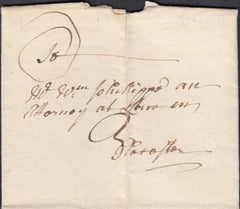 To
Mr Wm Phillipps an
Attorney at Law in
Glocester